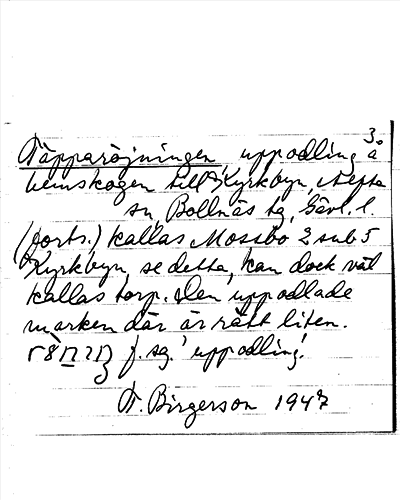 3.
Täpparöjningen, uppodling å
hemskogen till Kyrkbyn, Alfta
sn, Bollnäs tg, Gävl. l.
(forts.) kallas Mossbo 2 sub 5
Kyrkbyn, se detta, kan dock väl
kallas torp. Den uppodlade
marken där är rätt liten.
f. sg. 'uppodling'.
F. Birgerson 1947